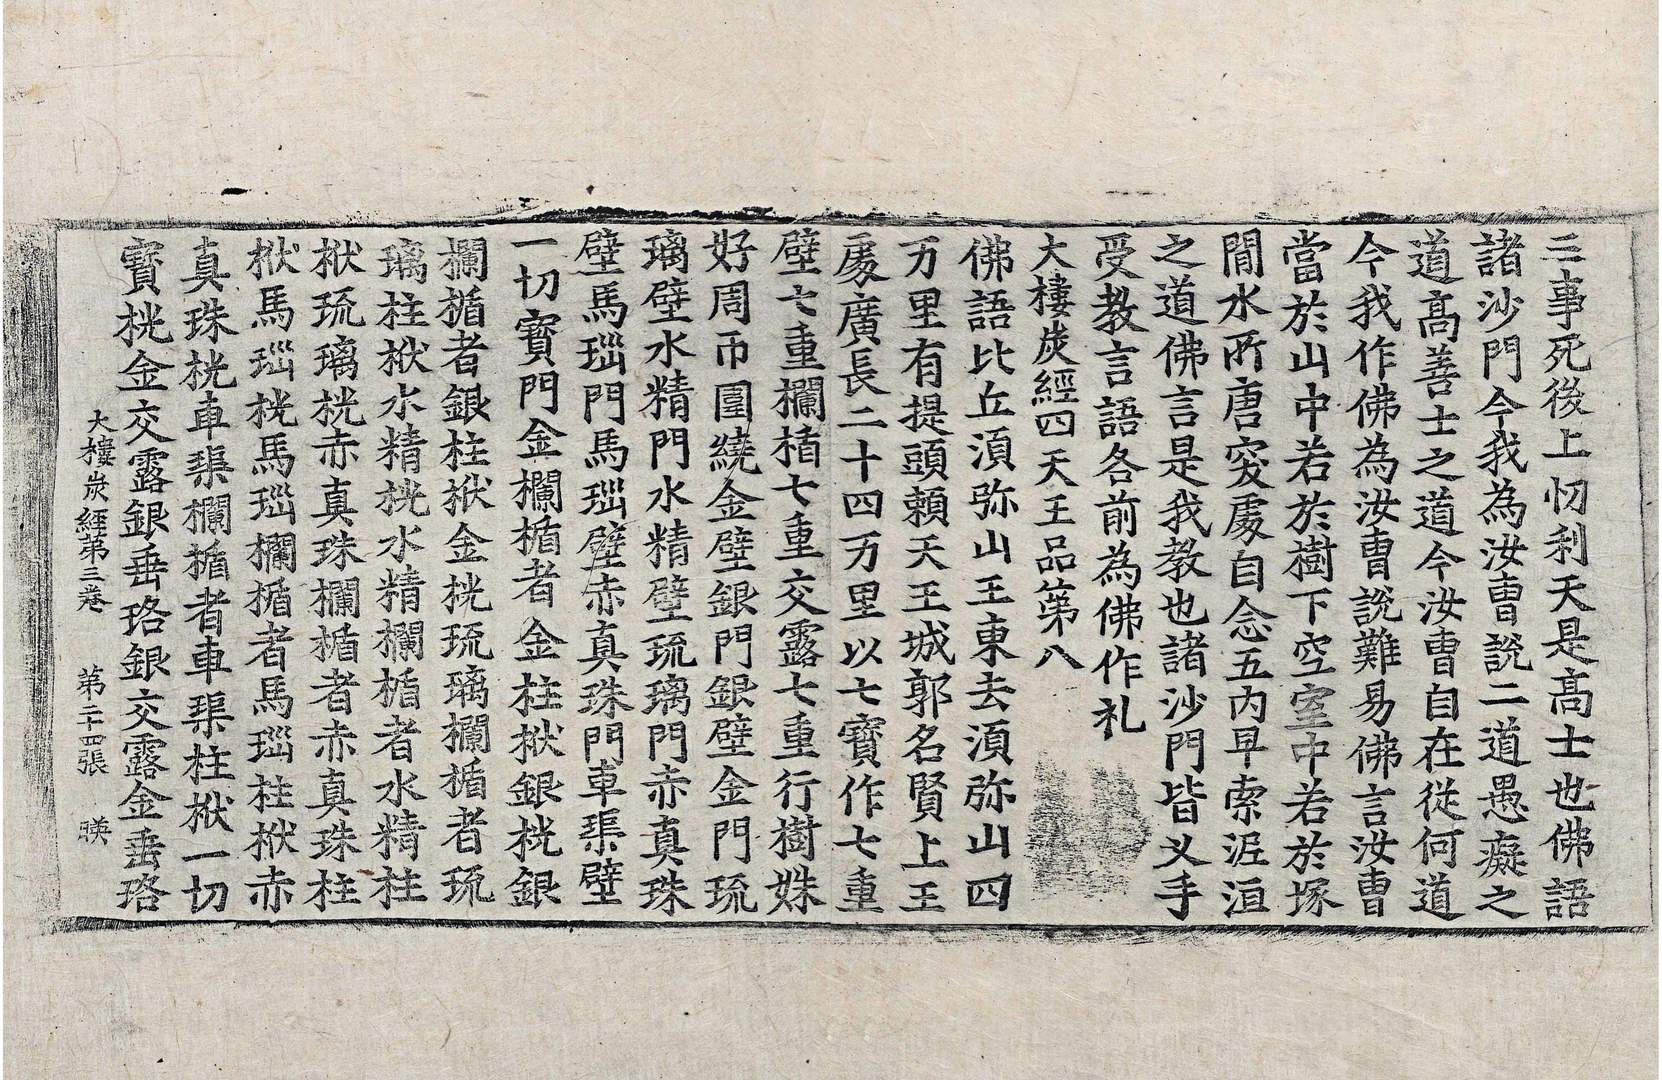 三事死後上忉利天是高士也佛語
諸沙門今我為汝曹說二道愚癡之
道高善士之道今汝曹自在從何道
今我作佛為汝曹說難易佛言汝曹
當於山中若於樹下空室中若於塚
間水所唐突處自念五內早索泥洹
之道佛言是我教也諸沙門皆叉手
受教言語各前為佛作礼
大樓炭經四天王品第八
佛語比丘湏弥山王東去湏弥山四
万里有提頭賴天王城郭名賢上王
處廣長二十四万里以七寶作七重
壁七重欄楯七重交露七重行樹姝
好周帀圍繞金壁銀門銀壁金門琉
璃壁水精門水精壁琉璃門赤真珠
壁馬瑙門馬瑙壁赤真珠門車𤦲壁
一切寶門金欄楯者金柱栿銀桄銀
欄楯者銀柱栿金桄琉璃欄楯者琉
璃柱栿水精桄水精欄楯者水精柱
栿琉璃桄赤真珠欄楯者赤真珠柱
栿馬瑙桄馬瑙欄楯者馬瑙柱栿赤
真珠桄車𤦲欄楯者車𤦲柱栿一切
寶桄金交露銀垂珞銀交露金垂珞
大樓炭經第三卷 第二十四張 暎